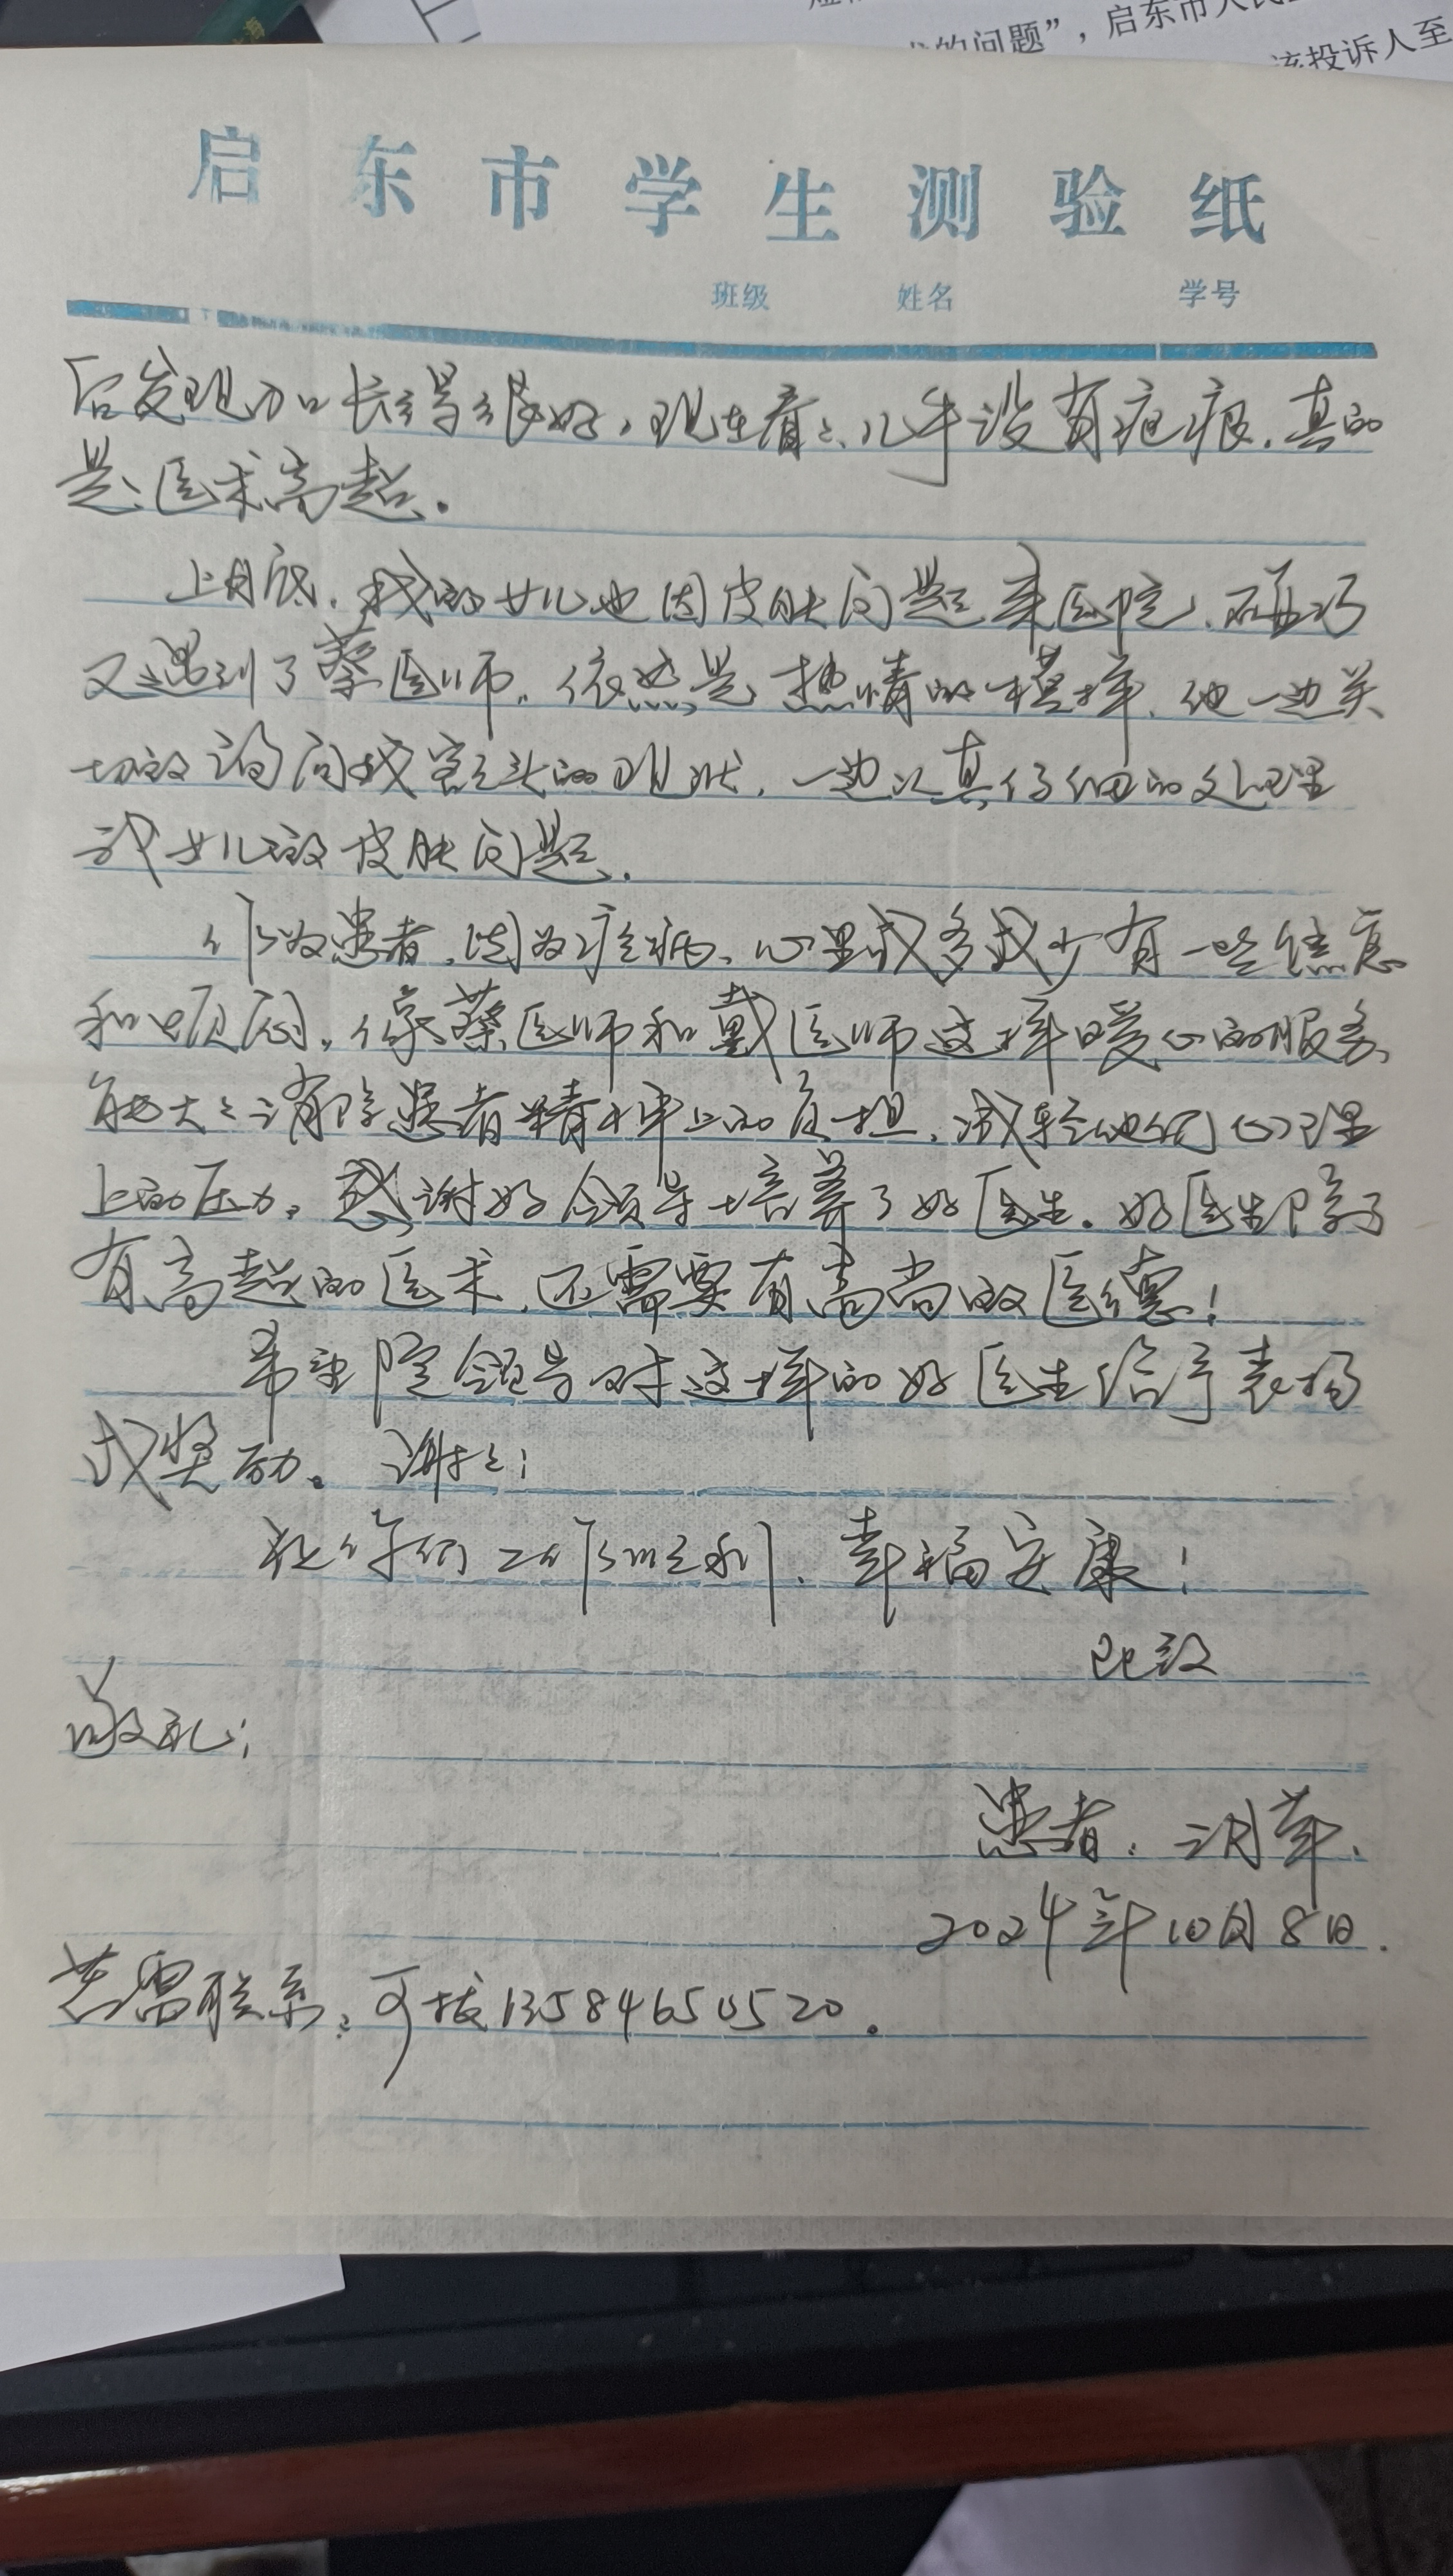 的问题”，启东市人民
该投诉人至
启东市学生测验纸
班级 姓名 学号
后发现刀口长得很好，现在看看，几乎没有疤痕，真的
是医术高超。
上月底，我的女儿也因皮肤问题来医院，碰巧
又遇到了蔡医师。依然是热情的模样，他一边关
切的询问我额头的现状，一边认真仔细的处理
我女儿的皮肤问题。
作为患者，因为疾病，心里或多或少有一些焦急
和烦闷。像蔡医师和戴医师这样暖心的服务，
能大大消除患者精神上的负担，减轻他们心理
上的压力。感谢好领导培养了好医生。好医生除了
有高超的医术，还需要有高尚的医德！
希望院领导对这样的好医生给予表扬
或奖励。谢谢！
祝你们工作顺利，幸福安康！
此致
敬礼！
患者：
2024年10月8日.
若需联系，可拨13584650520.